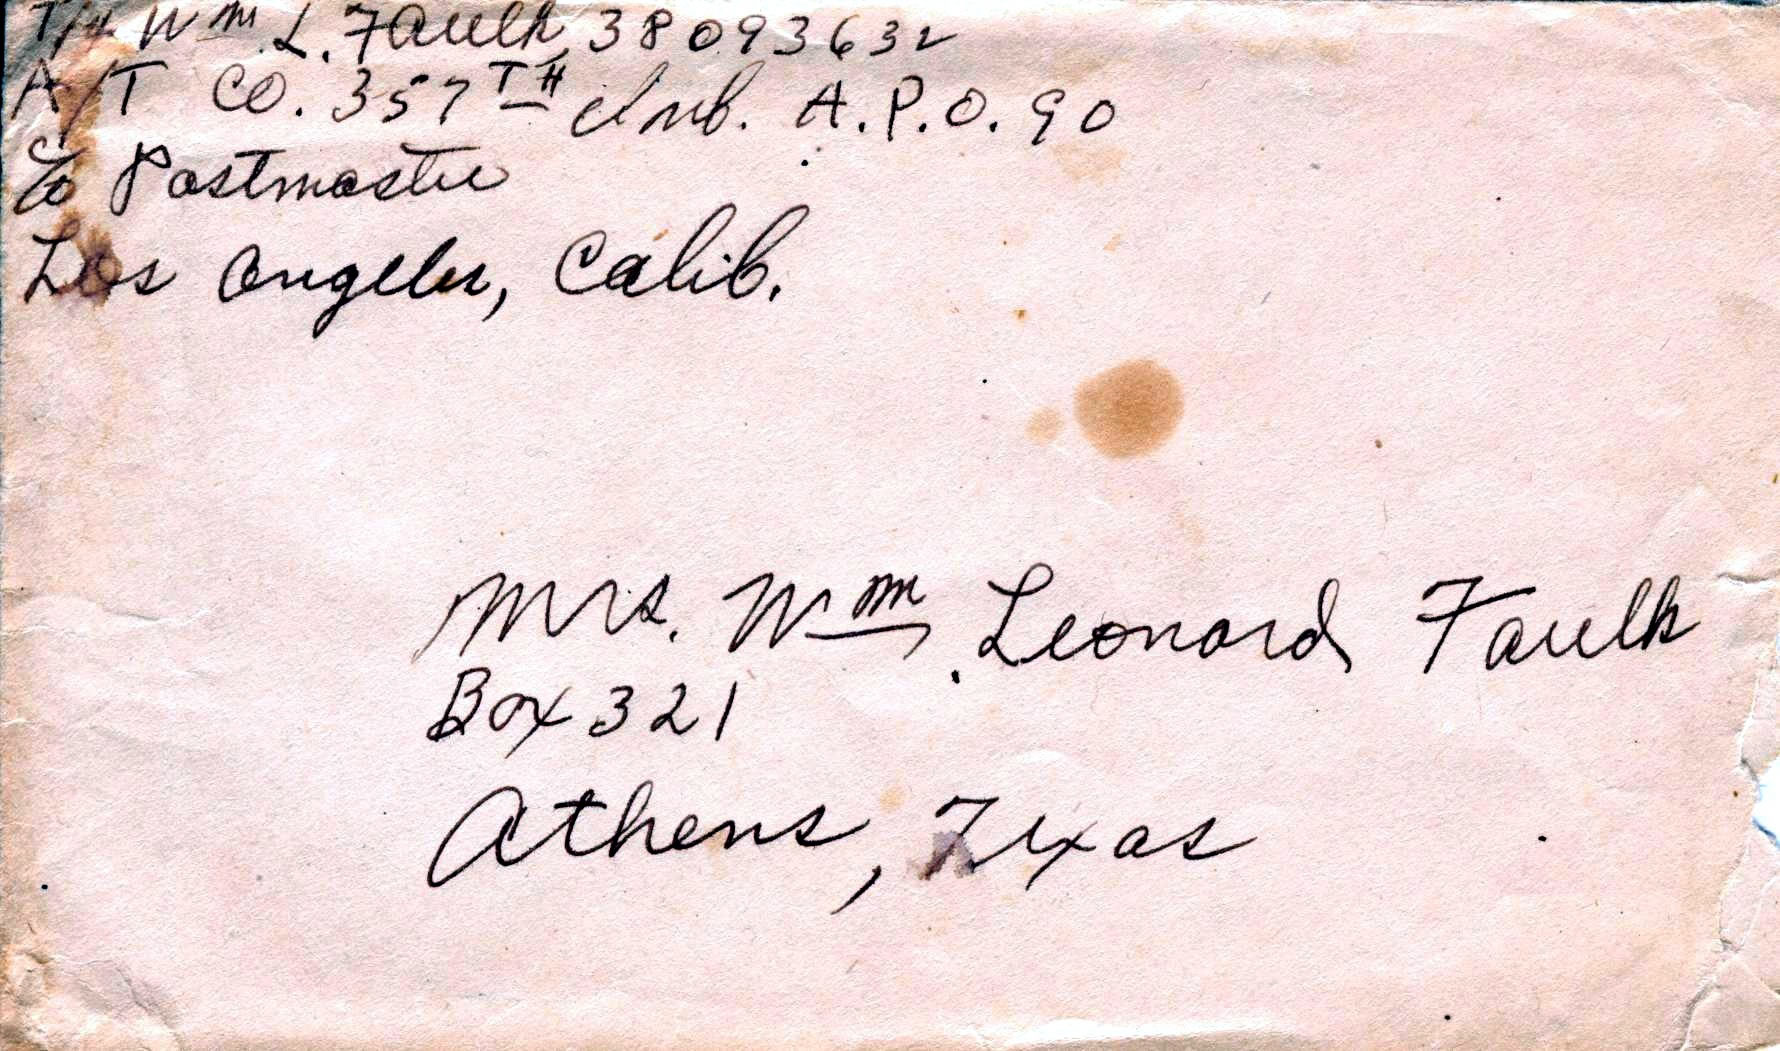 T/4 Wm L. Faulk, 38093632
A/T CO. 357TH Inf. A.P.O. 90
c/o Postmaster
Los Angeles, Calif.
Mrs. Wm. Leonard Faulk
Box 321
Athens, Texas